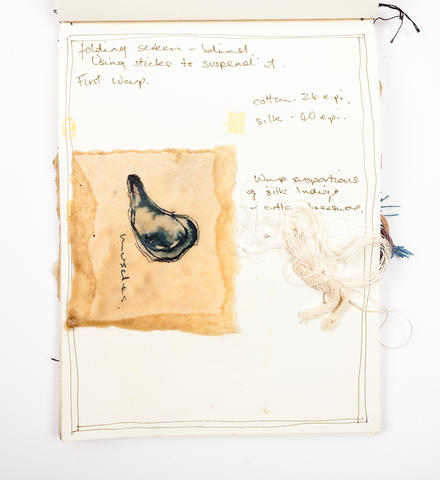 folding screen - blind.
Using sticks to suspend it.
First Warp.
cotton. 24 epi.
silk - 40 epi.
Warp proportions
of silk Indigo
cotton
muscles.